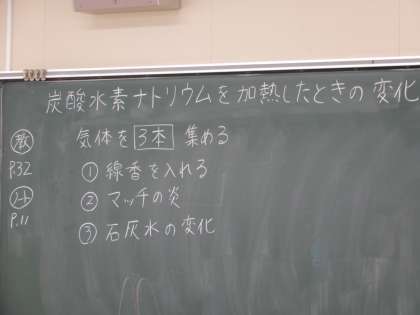 炭酸水素ナトリウムを加熱したときの変化
教 気体を 3本 集める
P.32 ① 線香を入れる
ノート ② マッチの炎
P.11 ③ 石灰水の変化